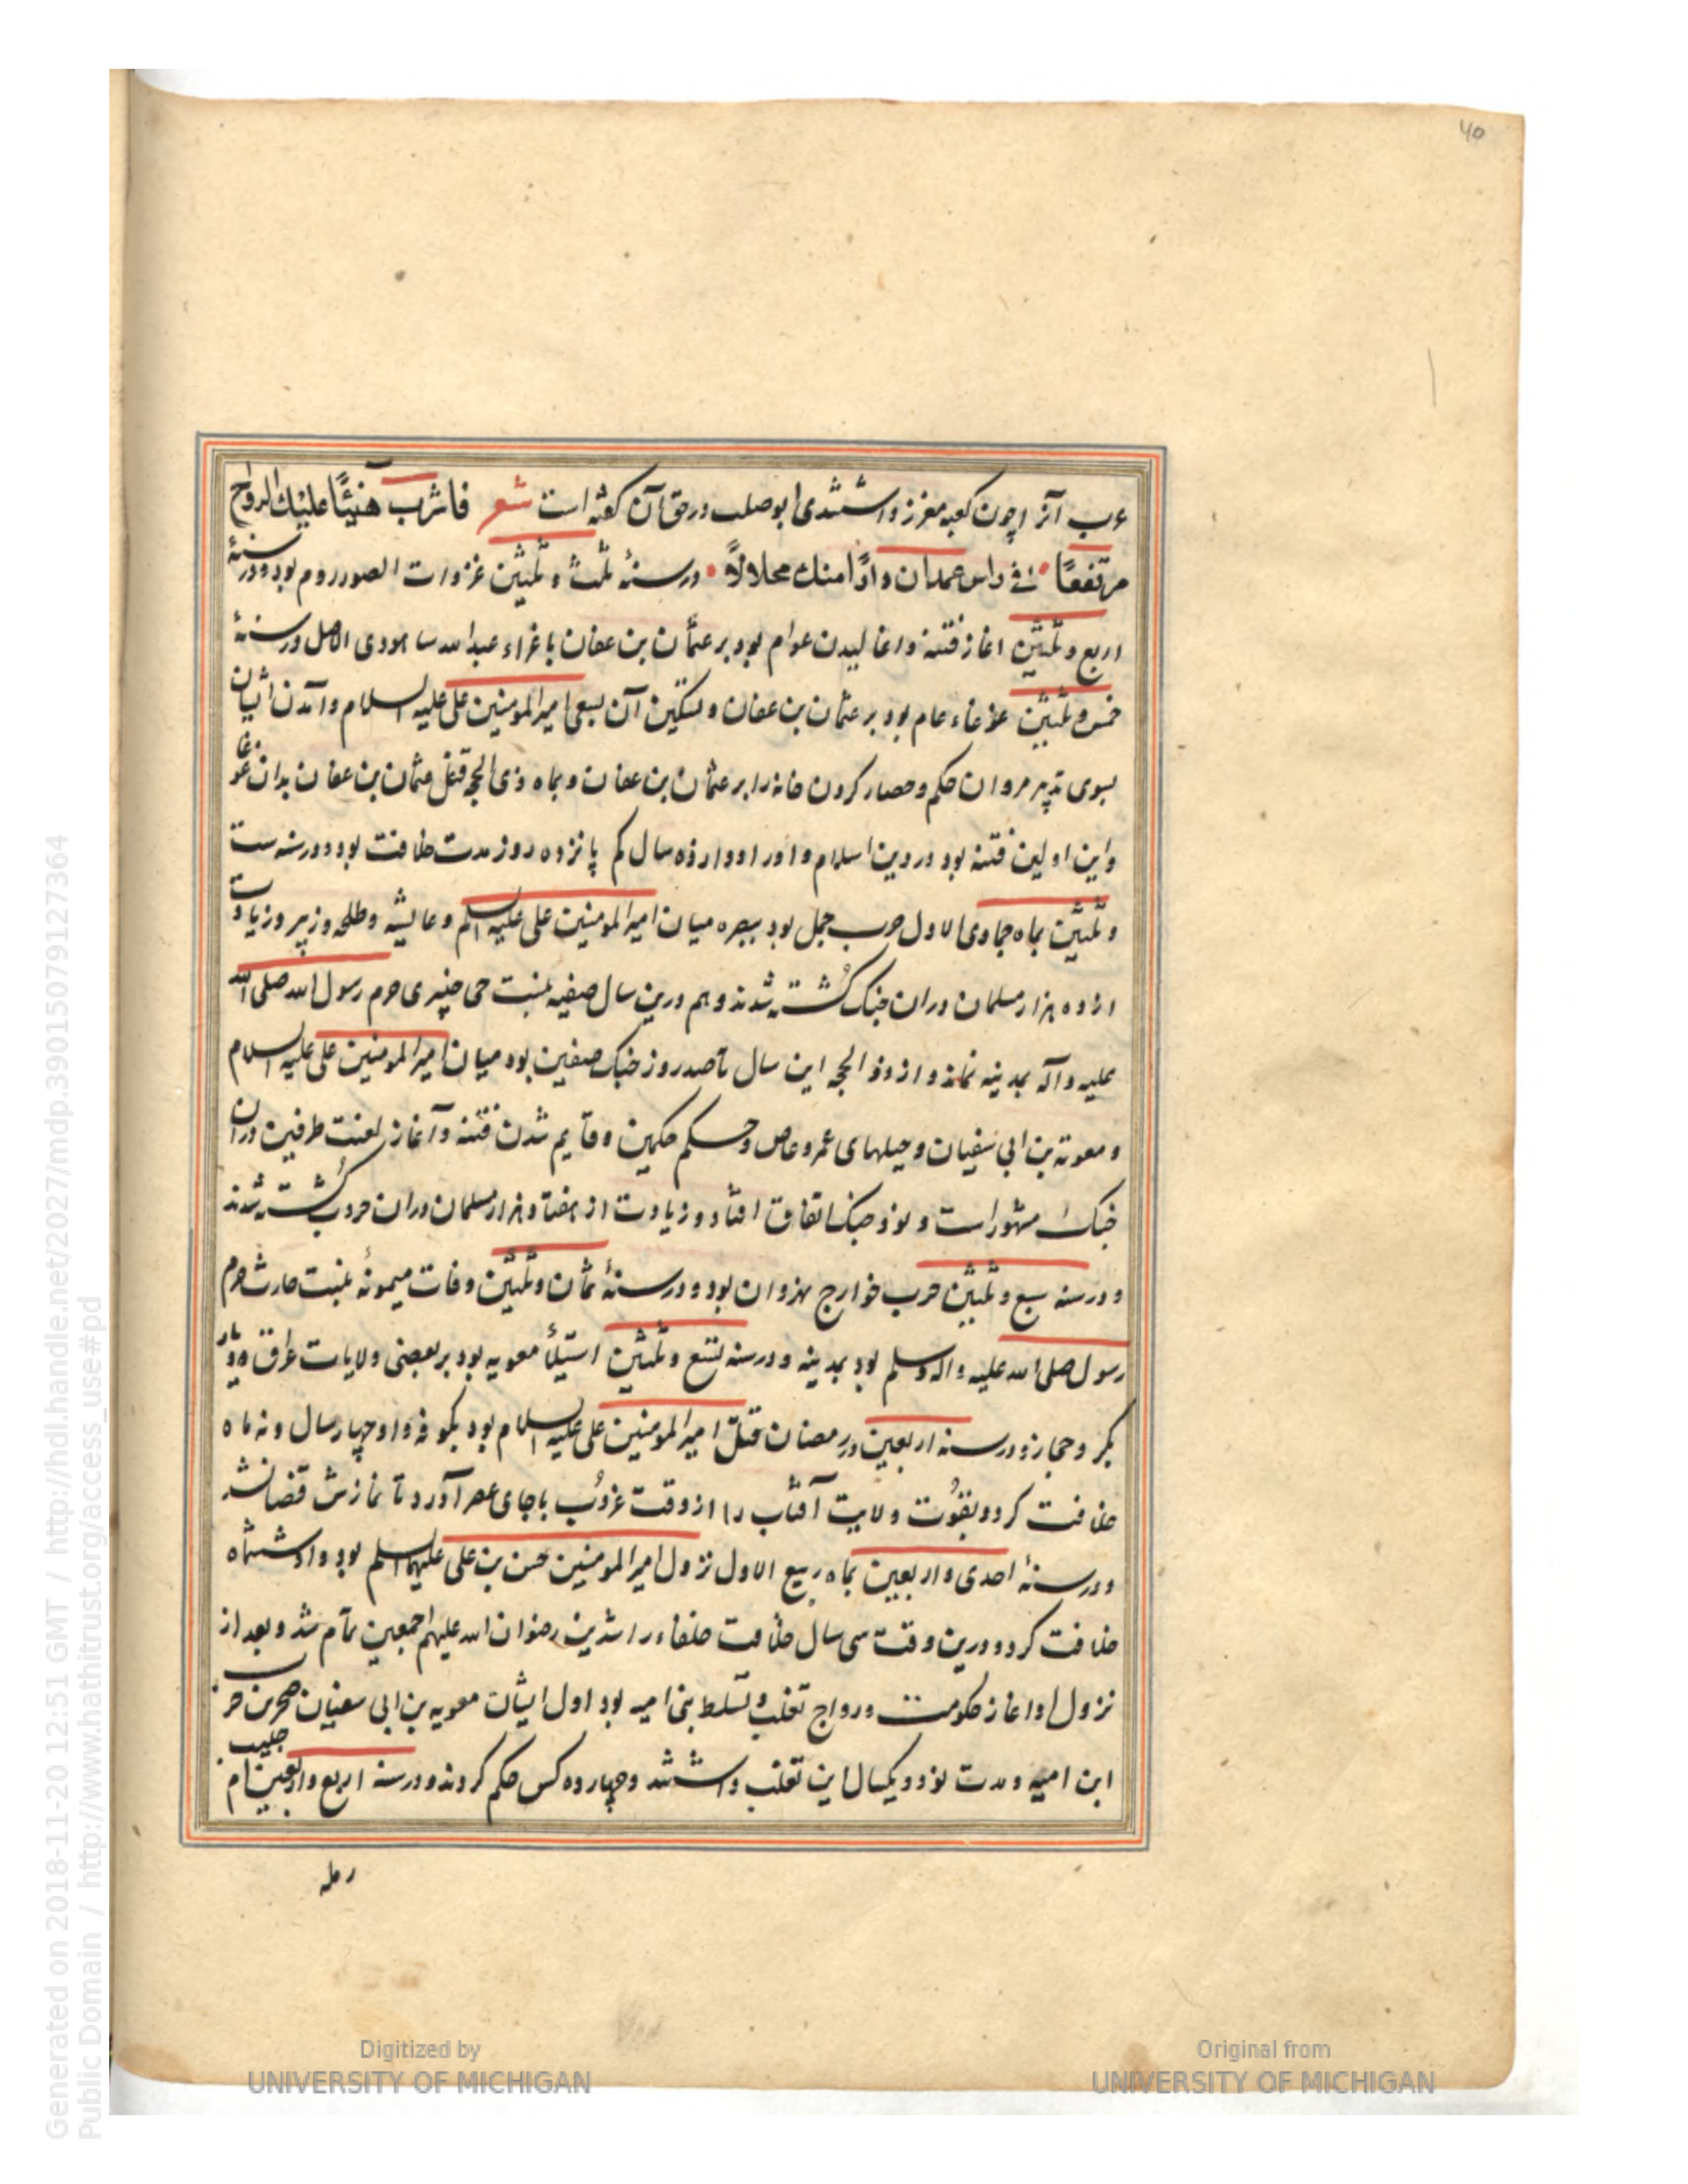 40
عرب آنرا چون کعبه معزز داشتندی ابوصلب درحق آن کفته است شعر فاشرب هنیئًا علیك الدواح
مرتفعًا فی راس عمدان دارًا منك محلالاً درسنهٔ ثلث و ثلثین غزوات الصور روم بود و درسنهٔ
اربع و ثلثین اغاز فتنه و اغالیدن عوام بود بر عثمان بن عفان باغراء عبدالله سا هودی الاصل درسنهٔ
خمس و ثلثین غوغاء عام بود بر عثمان بن عفان و تسکین آن بسعی امیرالمومنین علی علیه السلام و آمدن اشان
بسوی تدبیر مروان حکم و حصار کردن خانه را بر عثمان بن عفان و بماه ذی الحجه قتل عثمان بن عفان بدان غوغا
و این اولین فتنه بود در دین اسلام و او را دوازده سال کم پانزده روز مدت خلافت بود و درسنه ست
و ثلثین بماه جمادی الاول حرب جمل بود ببصره میان امیرالمومنین علی علیه السلم و عایشه و طلحه و زبیر و زیادت
از ده هزار مسلمان دران جنک کُشته شدند و هم درین سال صفیه بنت حی حرم رسول الله صلی الله
علیه و آله بمدینه نماند و از ذو الحجه این سال تاصد روز جنک صفین بود میان امیرالمومنین علی علیه السلام
و معویه بن ابی سفیان و حیلهای عمرو عاص و حکم حکمین و قایم شدن فتنه و آغاز لعنت طرفین دران
جنك مشهور است و نود جنک اتفاق افتاد و زیادت از هفتاد هزار مسلمان دران حروب کُشته شدند
و درسنه سبع و ثلثین حرب خوارج نهروان بود و درسنهٔ ثمان و ثلثین وفات میمونهٔ بنت حارث حرم
رسول صلی الله علیه و اله وسلم بود بمدینه و درسنه تسع و ثلثین استیلأ معویه بود بر بعضی ولایات عراق و دیار
بکر و حجاز و درسنه اربعین در رمضان قتل امیرالمومنین علی علیه السلام بود بکوفه و او چهار سال و نه ماه
خلافت کرد و بقُوّت ولایت آفتاب را از وقت غروُب باجای عصر آورد تا نمازش قضا نشد
و درسنهٔ احدی و اربعین بماه ربیع الاول نزول امیرالمومنین حسن بن علی علیهما السلم بود و او ششماه
خلافت کرد و درین وقت سی سال خلافت خلفاء راشدین رضوان الله علیهم اجمعین تمام شد و بعد از
نزول او اغاز حکومت و رواج تغلب و تسلط بنی امیه بود اول ایشان معویه بن ابی سفیان صخر بن حرب
ابن امیه و مدت نود و یکسال این تغلب داشتند و چهارده کس حکم کردند و درسنه اربع و اربعین ام حبیبه
رمله
Generated on 2018-11-20 12:51 GMT / http://hdl.handle.net/2027/mdp.39015079127364
Public Domain / http://www.hathitrust.org/access_use#pd
Digitized by
UNIVERSITY OF MICHIGAN
Original from
UNIVERSITY OF MICHIGAN